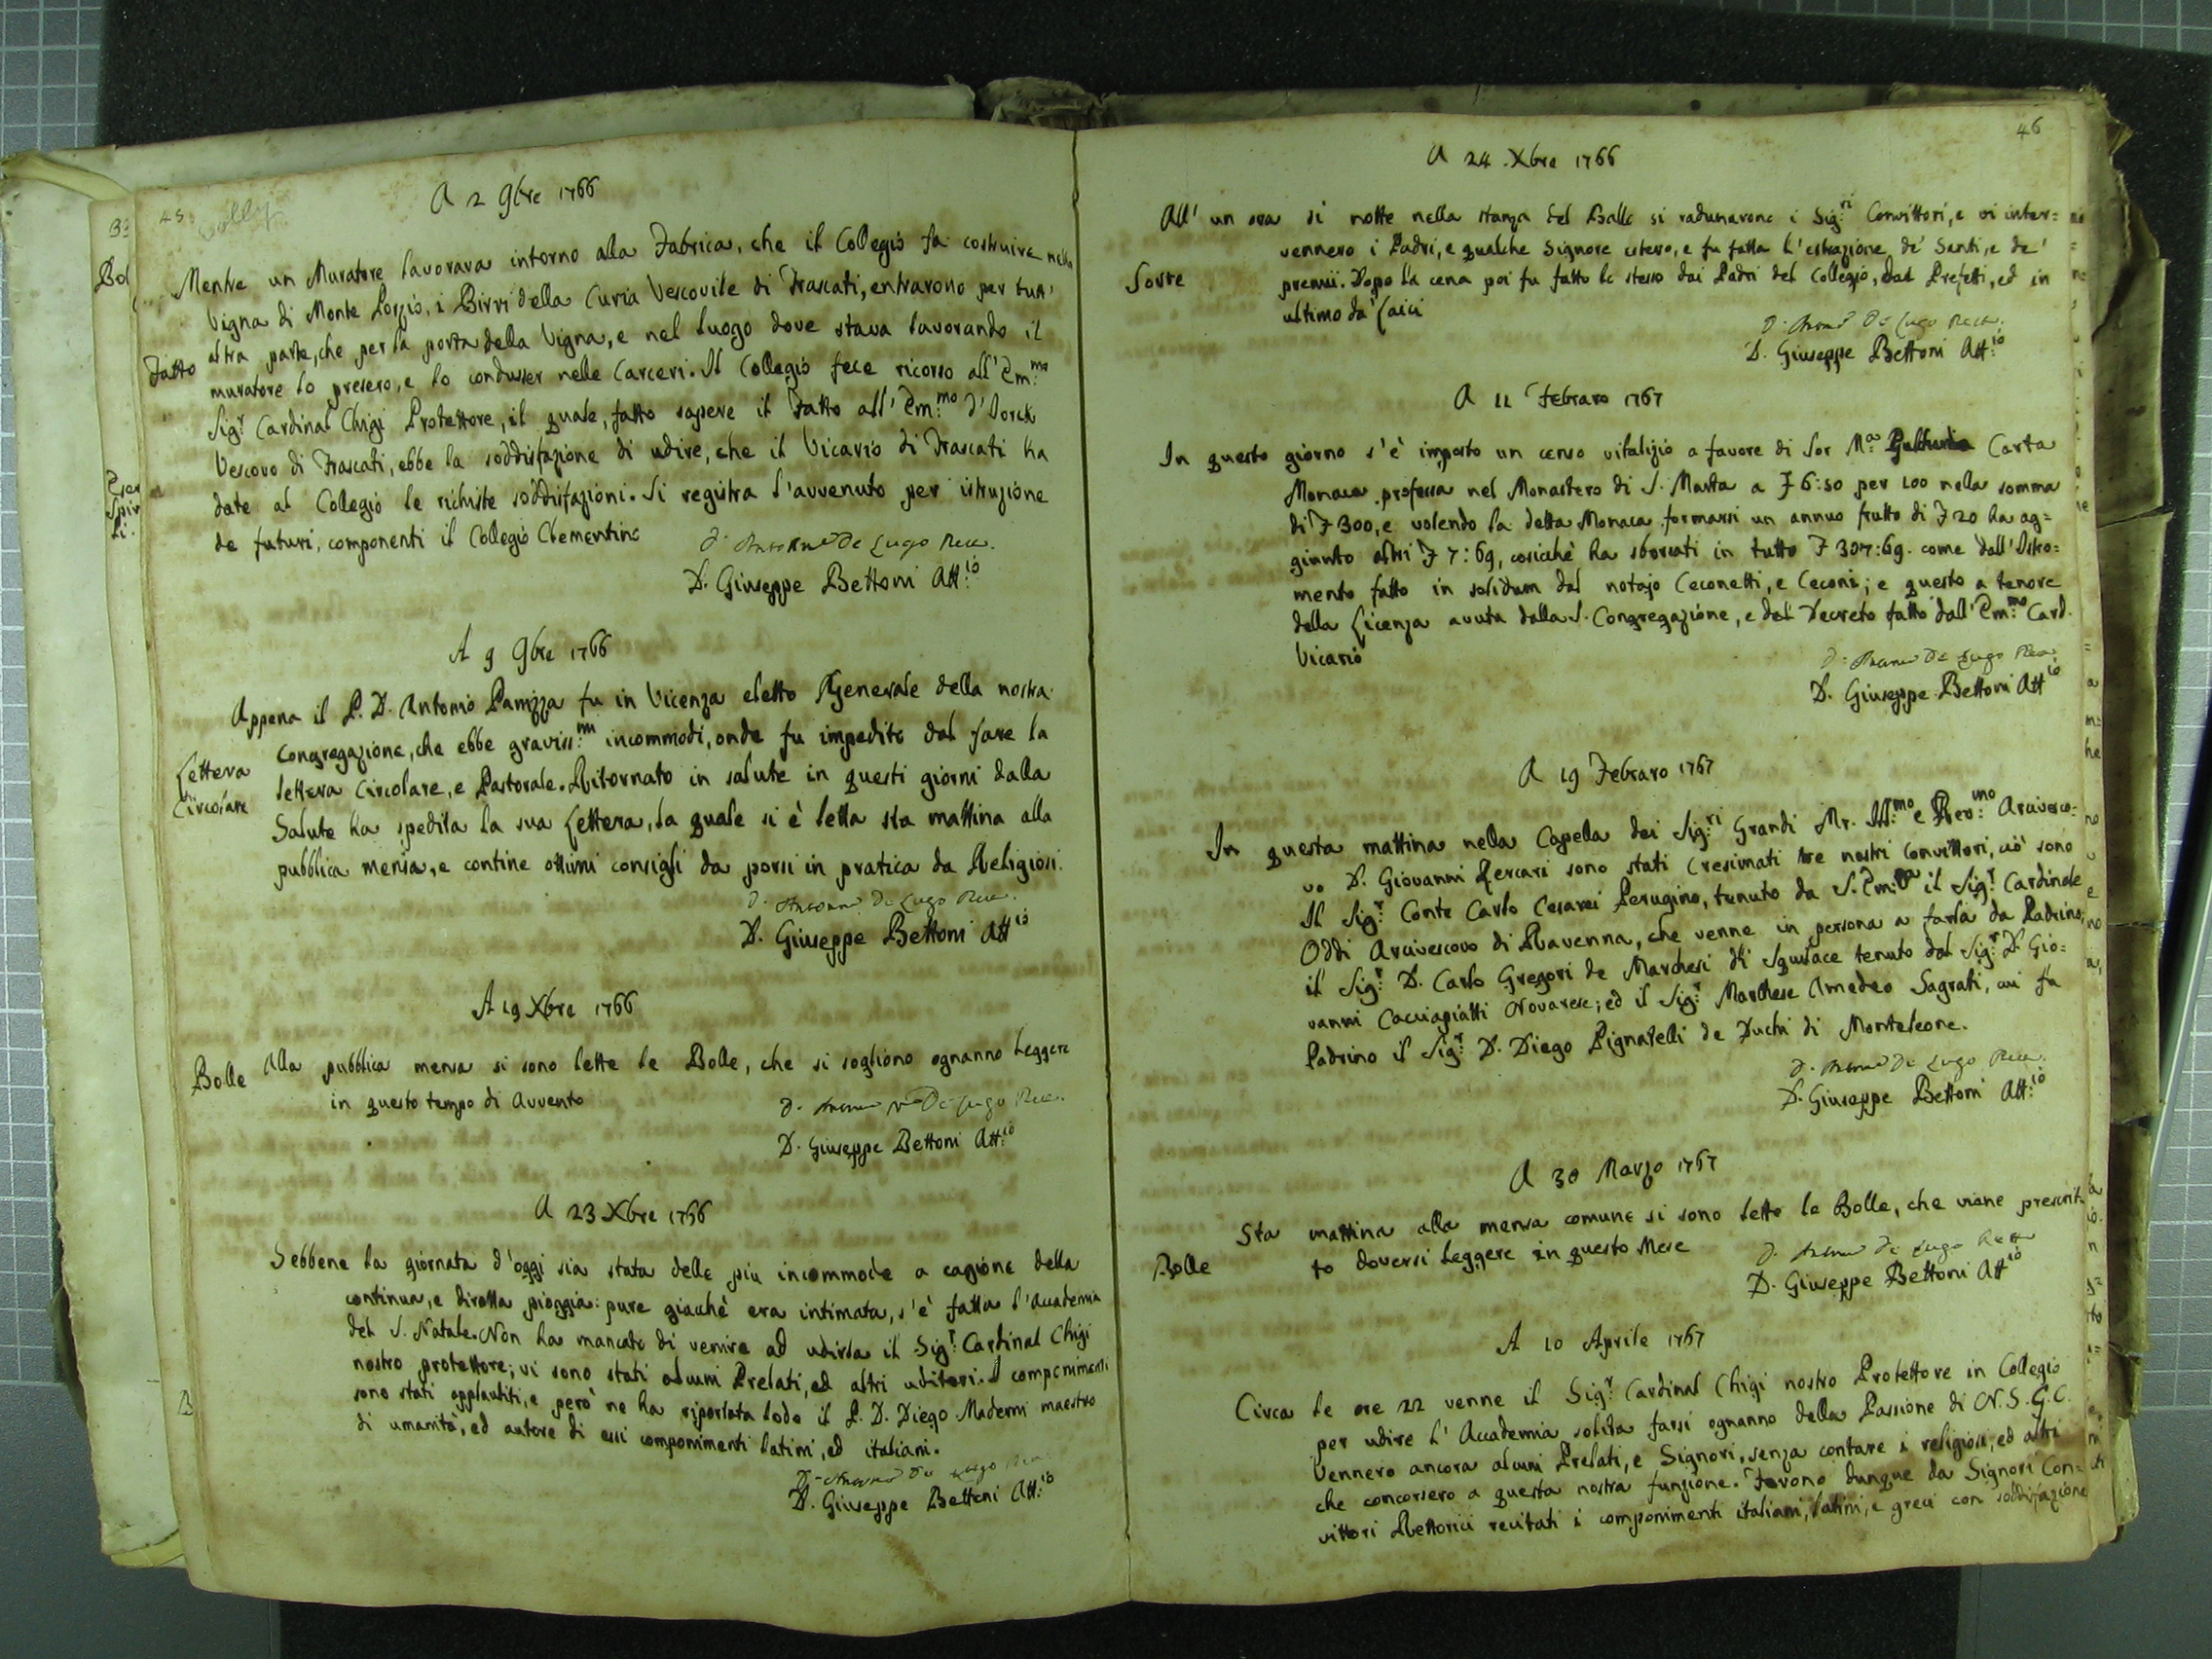 45
A 2 9bre 1766
Mentre un Muratore lavorava intorno alla Fabrica, che il Collegio fa costruire nella
Vigna di Monte Porzio, i Birri della Curia Vescovile di Frascati, entrarono per tutt'
Fatto
altra parte, che per la porta della Vigna, e nel luogo dove stava lavorando il
muratore lo presero, e lo condusser nelle Carceri. Il Collegio fece ricorso all' Em:mo
Sig:r Cardinal Chigi Protettore, il quale, fatto sapere il Fatto all' Em:mo d'Iorck
Vescovo di Frascati, ebbe la soddisfazione di udire, che il Vicario di Frascati ha
date al Collegio le richiste soddisfazioni. Si registra l'avvenuto per istruzione
de futuri, componenti il Collegio Clementino
D. Antonio De Lugo Rett.
D. Giuseppe Bettoni Att:io
A 9 9bre 1766
Appena il P. D. Antonio Panizza fu in Vicenza eletto Generale della nostra
Congregazione, che ebbe graviss:mi incommodi, onde fu impedito dal fare la
Lettera
Circolare
lettera Circolare, e Pastorale. Ritornato in salute in questi giorni dalla
Salute ha spedita la sua Lettera, la quale si è letta sta mattina alla
pubblica mensa, e contine ottimi consigli da porsi in pratica da Religiosi.
D. Antonio De Lugo Rett.
D. Giuseppe Bettoni Att:io
A 19 Xbre 1766
Bolle
Alla pubblica mensa si sono lette le Bolle, che si sogliono ognanno Leggere
in questo tempo di Avvento
D. Antonio De Lugo Rett.
D. Giuseppe Bettoni Att:io
A 23 Xbre 1766
Sebbene la giornata d'oggi sia stata delle più incommode a cagione della
continua, e dirotta pioggia: pure giachè era intimata, s'è fatta l'Accademia
del S. Natale. Non ha mancato di venire ad udirla il Sig:r Cardinal Chigi
nostro protettore; vi sono stati alcuni Prelati, ed altri uditori. I componimenti
sono stati applauditi, e però ne ha riportata lode il P. D. Diego Maderni maestro
di umanità, ed autore di essi componimenti latini, ed italiani.
D. Antonio De Lugo Rett.
D. Giuseppe Bettoni Att:io
46
A 24 Xbre 1766
All' un ora di notte nella stanza del Ballo si radunarono i Sig:ri Convittori, e vi inter=
vennero i Padri, e qualche Signore estero, e fu fatta l'estrazione de' Santi, e de'
Sorte
premii. Dopo la cena poi fu fatto lo stesso dai Padri del Collegio, dai Prefetti, ed in
ultimo da' Laici
D. Antonio De Lugo Rett.
D. Giuseppe Bettoni Att:io
A 11 Febraro 1767
In questo giorno s'è imposto un censo vitalizio a favore di Sor M:a Carta
Monaca professa nel Monastero di S. Marta a 6:50 per 100 nella somma
di 300, e volendo la detta Monaca formarsi un annuo frutto di 20 ha ag=
giunto altri 7:69, cosichè ha sborsati in tutto 307:69. come dall'Istro=
mento fatto in solidum dal notajo Ceconetti, e Ceconi; e questo a tenore
della Licenza avuta dalla S. Congregazione, e dal Decreto fatto dall' Em:mo Card.
Vicario
D. Antonio De Lugo Rett.
D. Giuseppe Bettoni Att:io
A 19 Febraro 1767
In questa mattina nella Capella dei Sig:ri Grandi Mr. Ill:mo e Rev:mo Arcivesco=
vo D. Giovanni Lercari sono stati Cresimati tre nostri Convittori, ciò sono
Il Sig:r Conte Carlo Cesarei Perugino, tenuto da S. Em:za il Sig:r Cardinale
Oddi Arcivescovo di Ravenna, che venne in persona a farla da Padrino;
il Sig:r D. Carlo Gregori de Marchesi di Squilace tenuto dal Sig:r D. Gio=
vanni Cacciapiatti Novarese; ed il Sig:r Marchese Amedeo Sagrati, cui fu
Padrino il Sig:r D. Diego Pignatelli de Duchi di Monteleone.
D. Antonio De Lugo Rett.
D. Giuseppe Bettoni Att:io
A 30 Marzo 1767
Sta mattina alla mensa comune si sono lette le Bolle, che viene prescrit
Bolle
to doversi Leggere in questo Mese
D. Antonio De Lugo Rett.
D. Giuseppe Bettoni Att:io
A 10 Aprile 1767
Circa le ore 22 venne il Sig:r Cardinal Chigi nostro Protettore in Collegio
per udire l'Accademia solita farsi ognanno della Passione di N. S. G. C.
Vennero ancora alcuni Prelati, e Signori, senza contare i religiosi, ed altri
che concorsero a questa nostra funzione. Furono dunque da Signori Con=
vittori Rettorici recitati i componimenti italiani, latini, e greci con soddisfazione